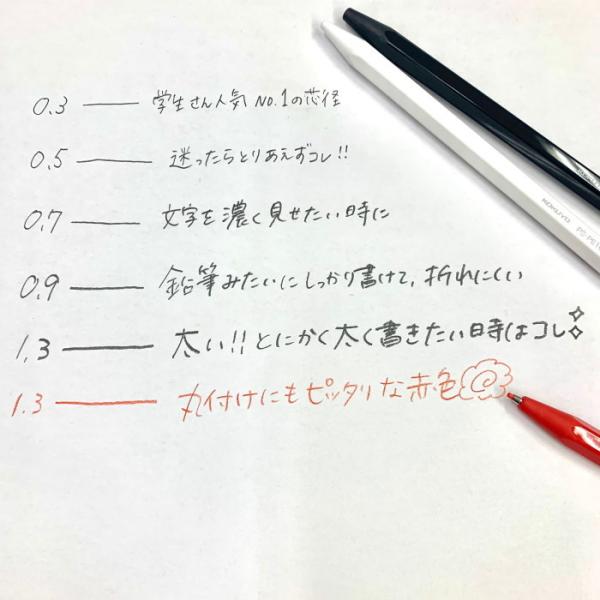 0.3 学生さん人気 No.1の芯径
0.5 迷ったらとりあえずコレ!!
0.7 文字を濃く見せたい時に
0.9 鉛筆みたいにしっかり書けて、折れにくい
1.3 太い!!とにかく太く書きたい時はコレ
1.3 丸付けにもピッタリな赤色
KOKUYO